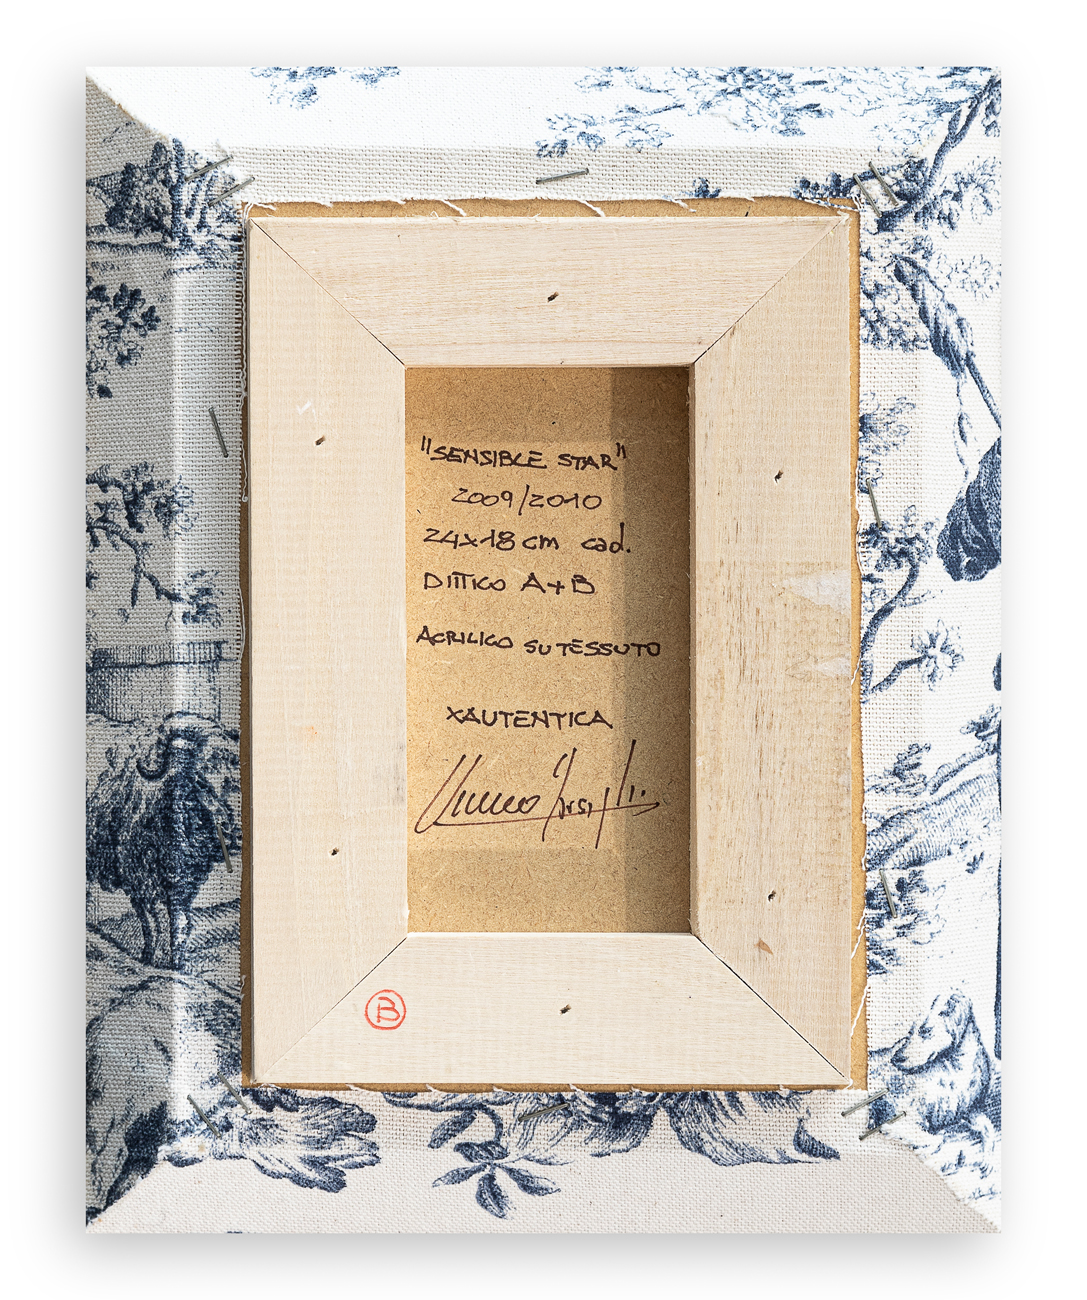 "SENSIBLE STAR"
2009/2010
24x18 cm cad.
DITTICO A+B
ACRILICO SU TESSUTO
XAUTENTICA
B